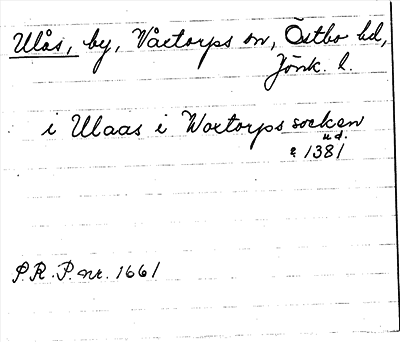 Ulås, by, Våxtorps sn, Östbo hd,
Jönk. l.
i Ulaas i Woxtorps socken
u d.
1381
P.R.P. nr. 1661